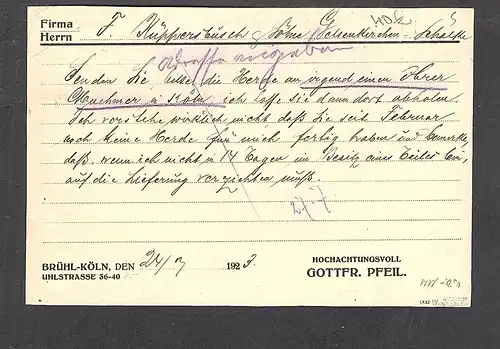 Firma
Herrn F. Küppersbusch & Söhne Gelsenkirchen-Schalke
Adresse angeben
Senden Sie, bitte die Herde an irgend einen Ihrer
Abnehmer in Köln, ich lasse sie dann dort abholen
Ich verstehe wirklich nicht daß Sie seit Februar
noch keine Herde für mich fertig haben und bemerke,
daß, wenn ich nicht in 14 Tagen im Besitz eines Teiles bin,
auf die Lieferung verzichten muß.
27.7
BRÜHL-KÖLN, DEN 24/7 1923.
UHLSTRASSE 36-40
HOCHACHTUNGSVOLL
GOTTFR. PFEIL.